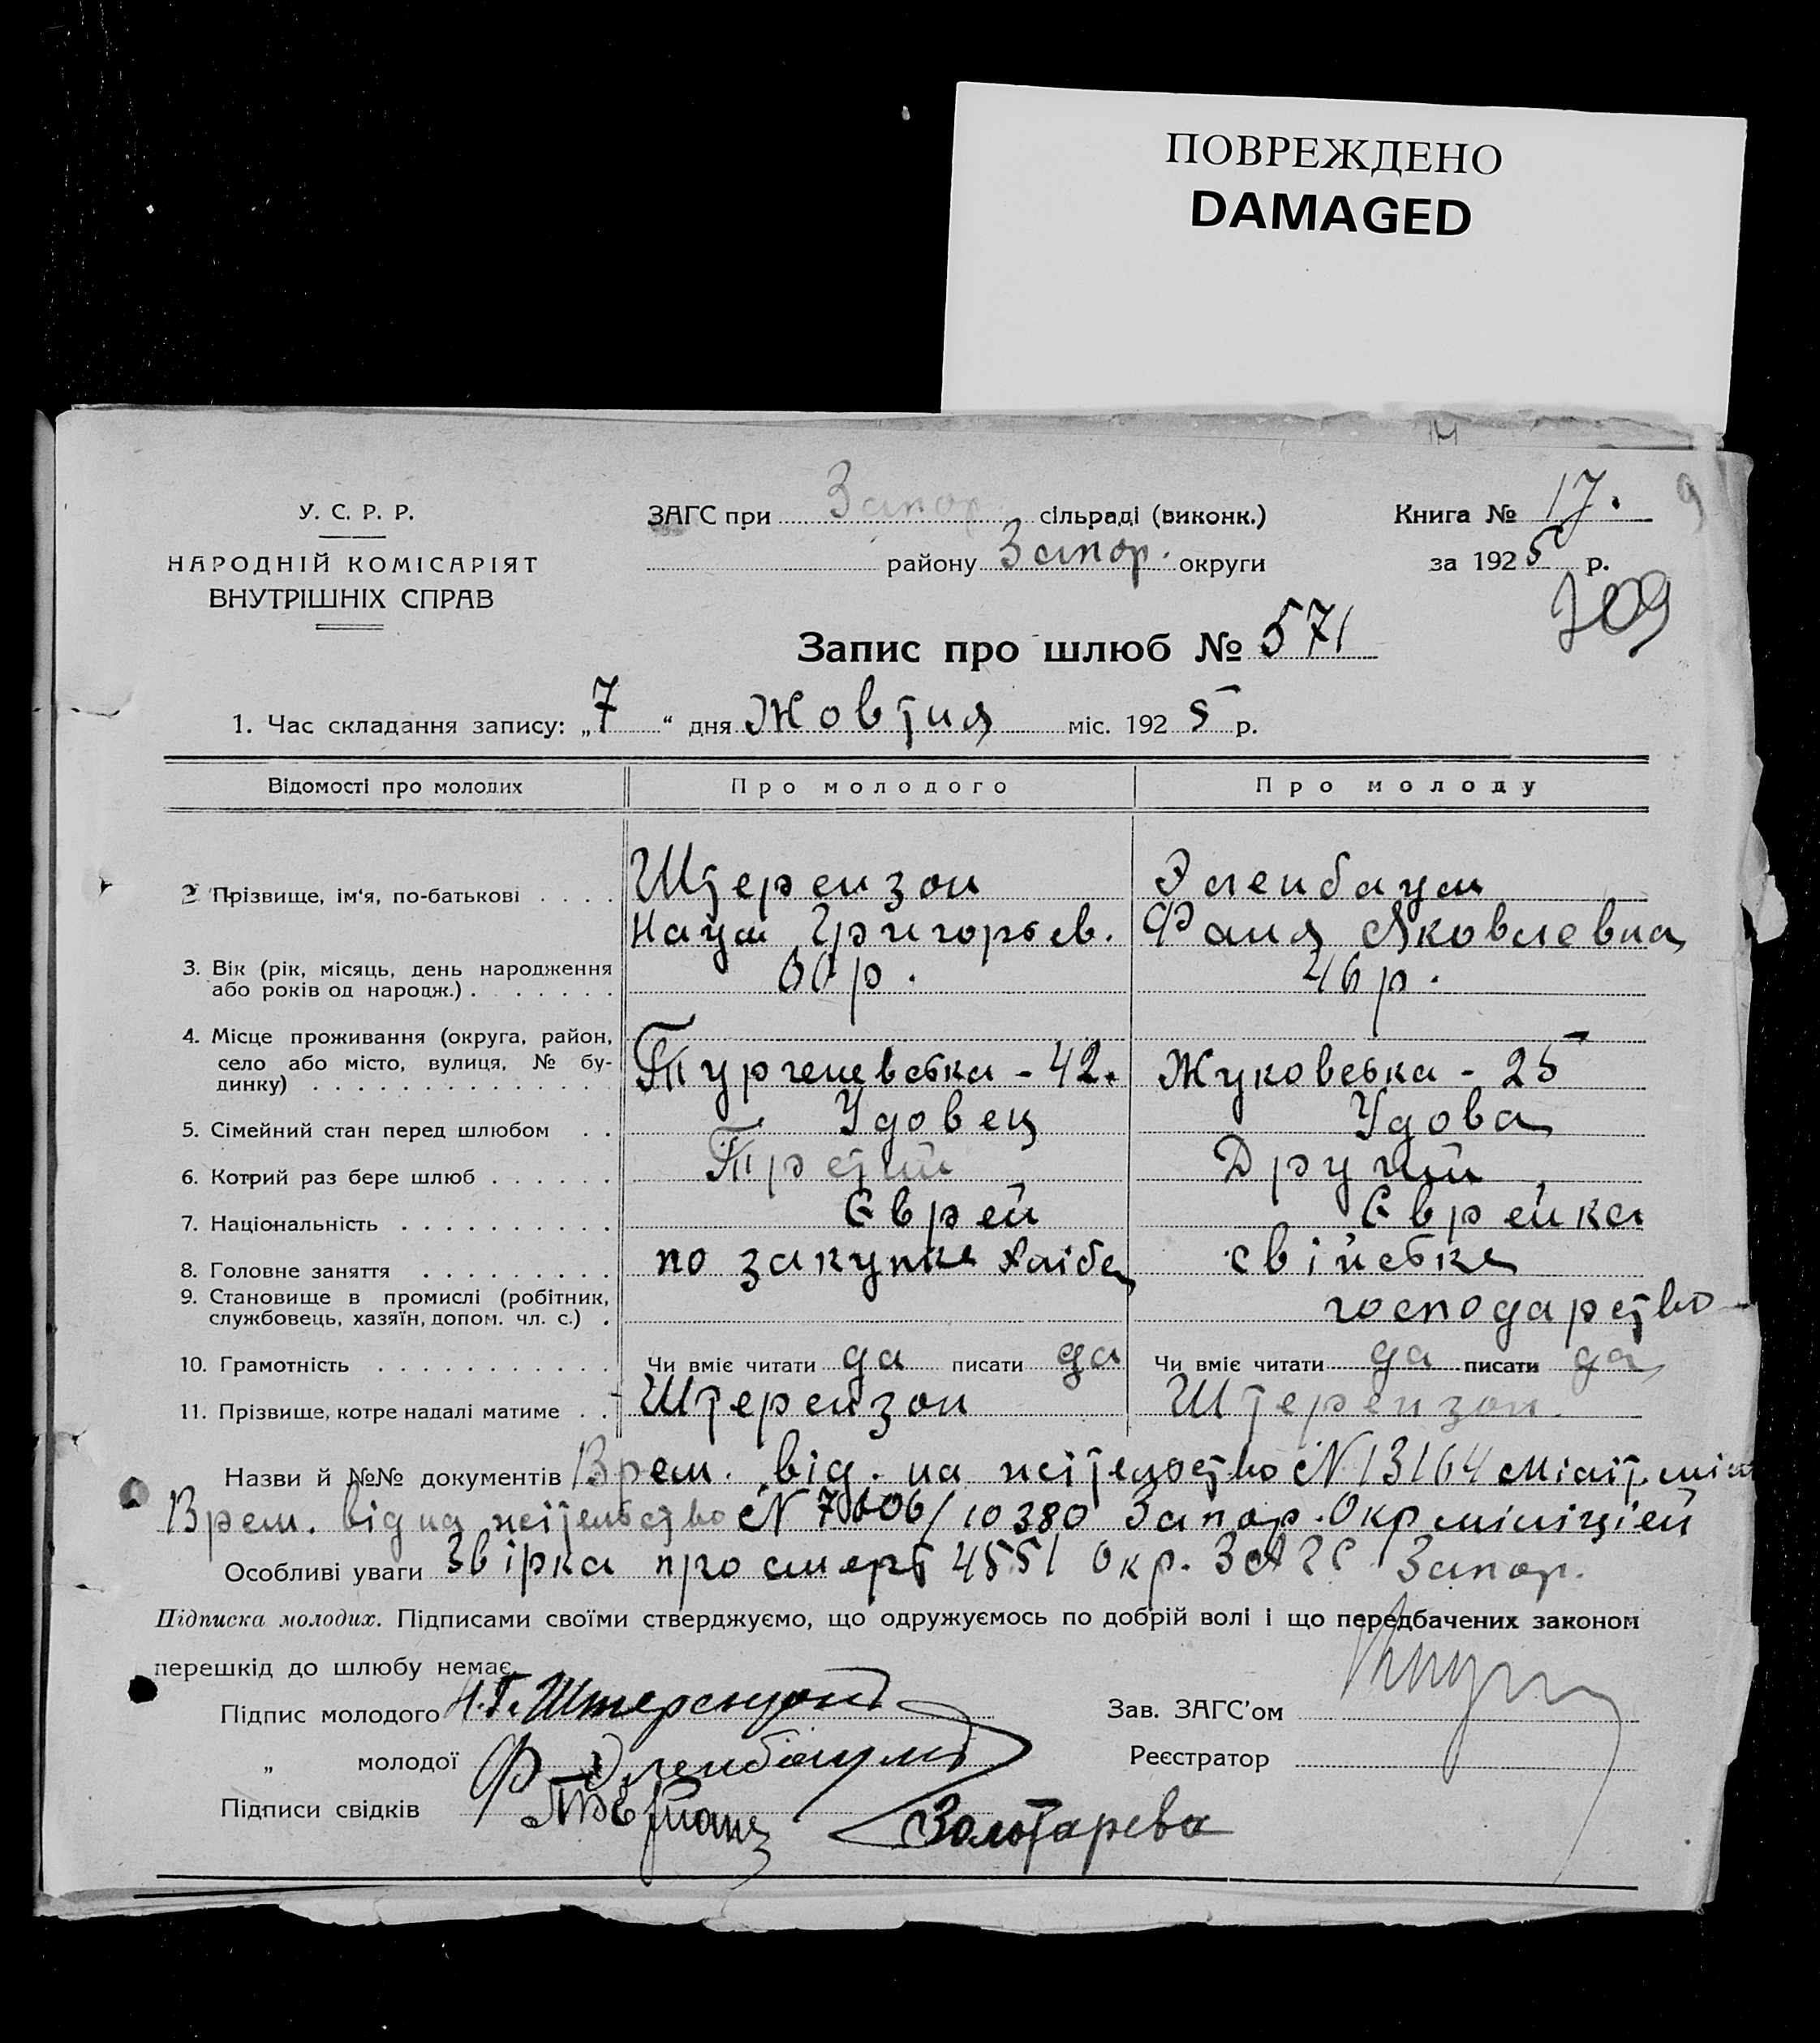 ПОВРЕЖДЕНО
DAMAGED
У. С. Р. Р.
НАРОДНІЙ КОМІСАРІЯТ
ВНУТРІШНІХ СПРАВ
ЗАГС при Запор. сільраді (виконк.)
району Запор. округи
Книга № 17.
за 1925 р.
9
709
Запис про шлюб № 571
1. Час складання запису: „7“ дня Жовтня міс. 1925 р.
Відомості про молодих Про молодого Про молоду
2 Прізвище, ім'я, по-батькові Штерензон Эленбаум
Наум Григорьев. Фаня Яковлевна
3. Вік (рік, місяць, день народження 60 р. 46 р.
або років од народж.)
4. Місце проживання (округа, район,
село або місто, вулиця, № бу-
динку) Тургеневська - 42. Жуковська - 25
5. Сімейний стан перед шлюбом Удовец Удова
6. Котрий раз бере шлюб Третий Другий
7. Національність Єврей Єврейка
8. Головне заняття по закупке хліба свійське
9. Становище в промислі (робітник, господарство
службовець, хазяїн, допом. чл. с.)
10. Грамотність Чи вміє читати да писати да Чи вміє читати да писати да
11. Прізвище, котре надалі матиме Штерензон Штерензон
Назви й №№ документів Врем. від. на жітельство № 13164 Міліт.
Врем. від на жітельство № 7606/10380 Запор. Окр міліцієй
Особливі уваги Звірка про смерть 4551 Окр. ЗАГС Запор.
Підписка молодих. Підписами своїми стверджуємо, що одружуємось по добрій волі і що передбачених законом
перешкід до шлюбу немає.
Підпис молодого Н.Г. Штерензонъ Зав. ЗАГС'ом
„ молодої Ф. Эленбаумъ Реєстратор
Підписи свідків Золотарева